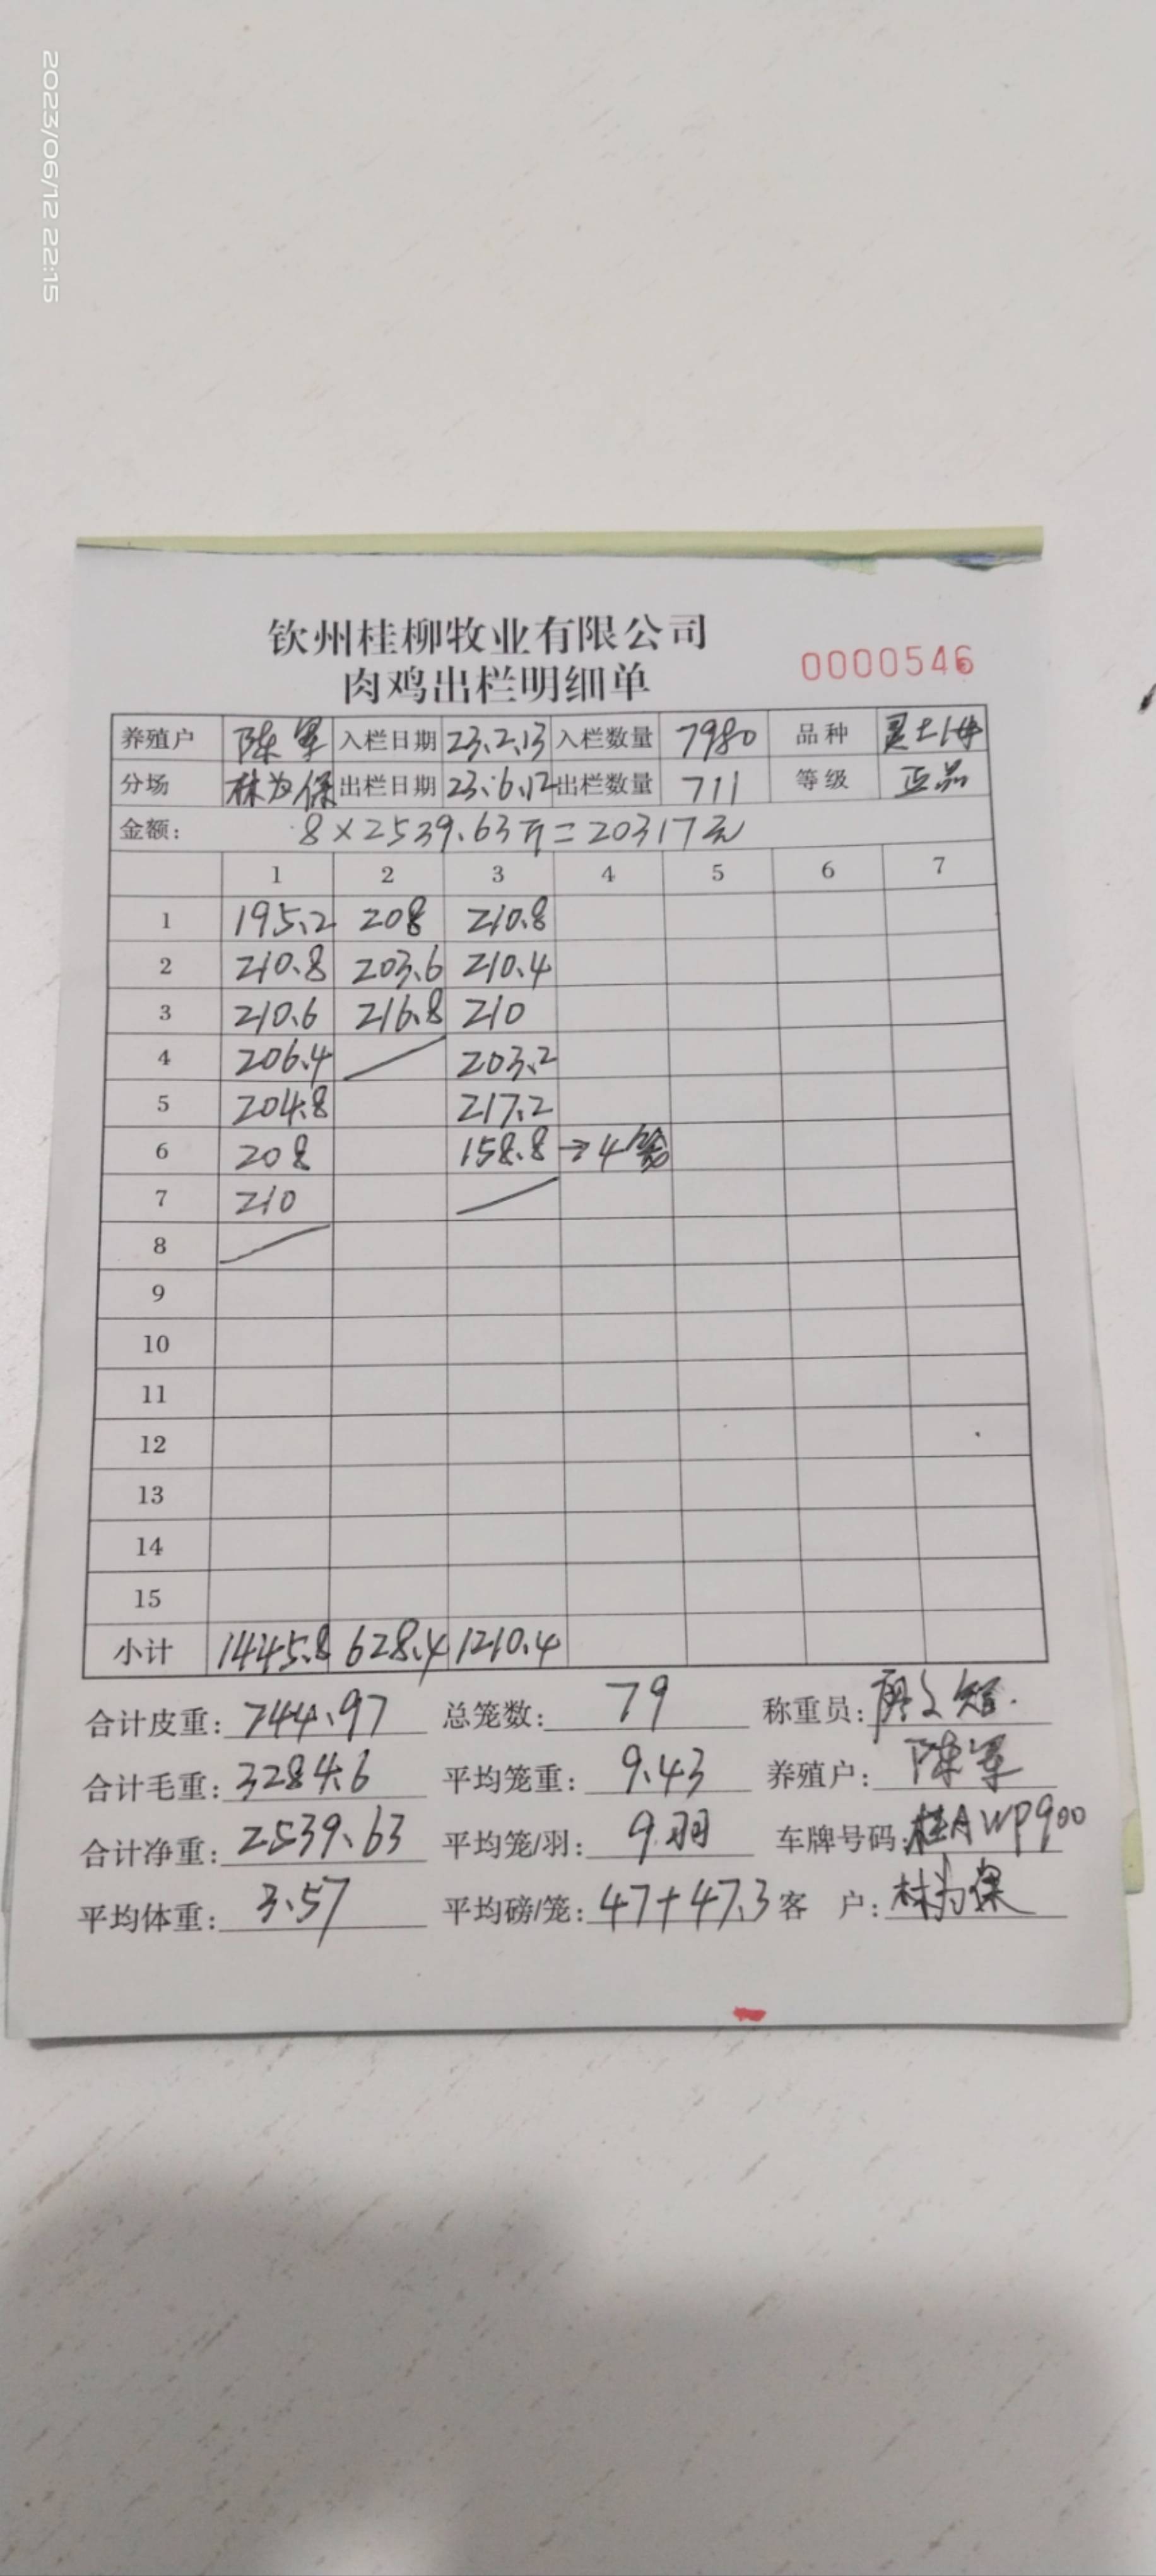 2023/06/12 22:15
钦州桂柳牧业有限公司
肉鸡出栏明细单
0000546
养殖户 陈军 入栏日期 23.2.13 入栏数量 7980 品种 灵土1母
分场 林为保 出栏日期 23.6.12 出栏数量 711 等级 正品
金额: 8×2539.63斤=20317元
1 2 3 4 5 6 7
1 195.2 208 210.8
2 210.8 203.6 210.4
3 210.6 216.8 210
4 206.4 203.2
5 204.8 217.2
6 208 158.8→4笼
7 210
8
9
10
11
12
13
14
15
小计 1445.8 628.4 1210.4
合计皮重: 744.97 总笼数: 79 称重员:
合计毛重: 3284.6 平均笼重: 9.43 养殖户: 陈军
合计净重: 2539.63 平均笼/羽: 9羽 车牌号码: 桂AWP900
平均体重: 3.57 平均磅/笼: 47+47.3 客 户: 林为保